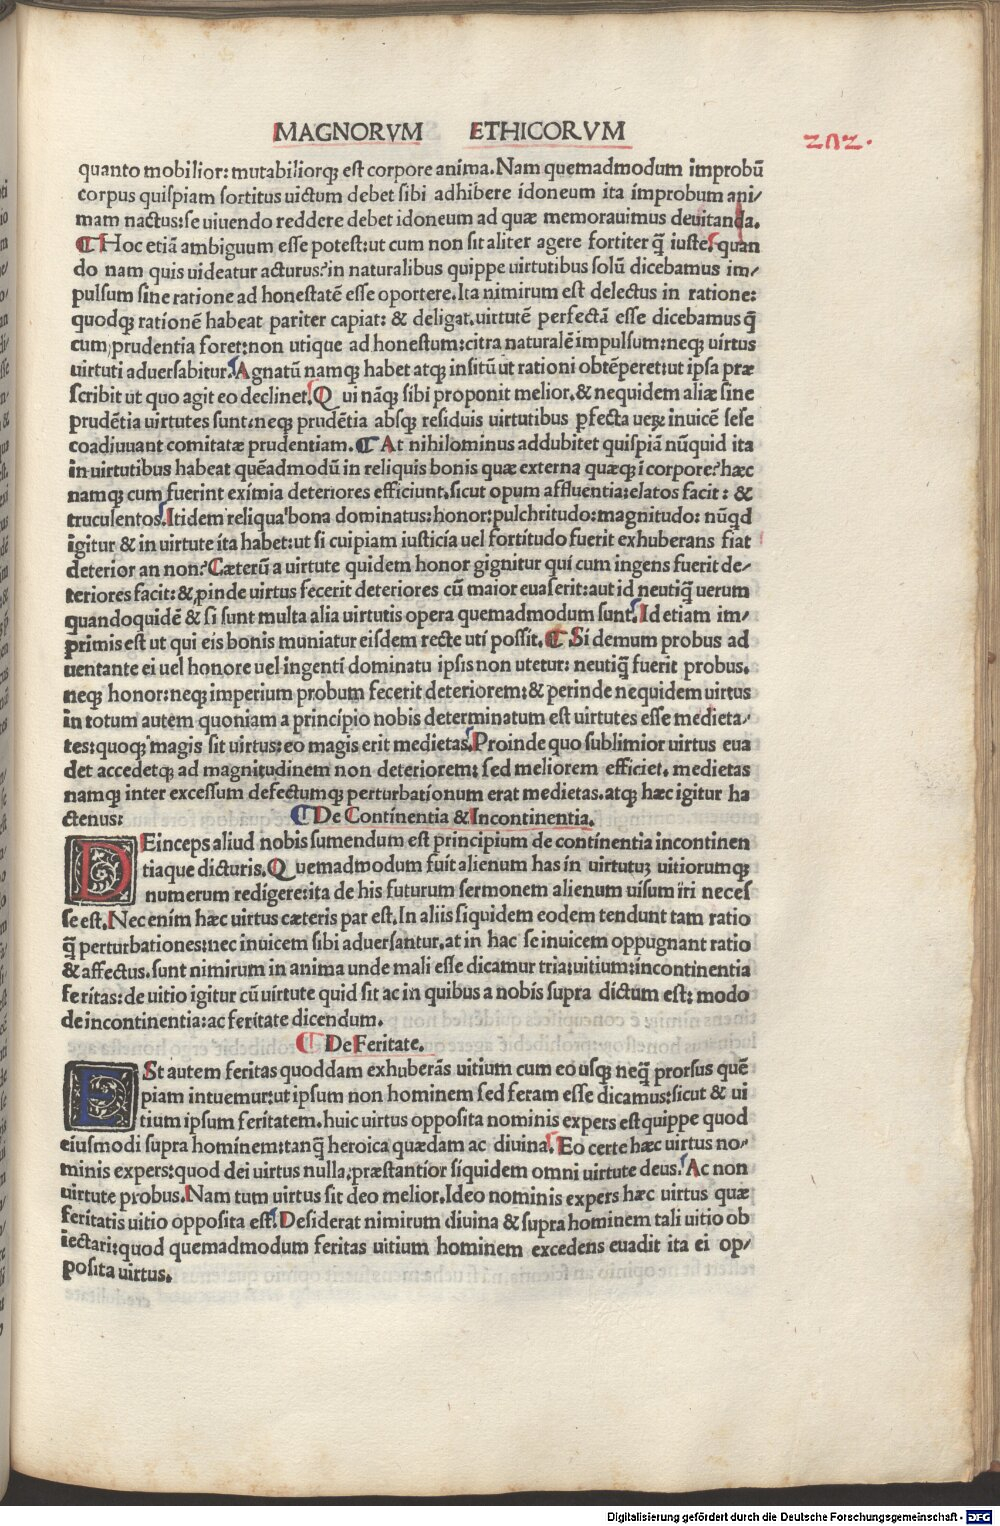 MAGNORVM ETHICORVM
202.
quanto mobilior: mutabiliorqꝫ est corpore anima. Nam quemadmodum improbũ
corpus quispiam sortitus uictum debet sibi adhibere idoneum ita improbum ani/
mam nactus: se uiuendo reddere debet idoneum ad quæ memorauimus deuitanda.
¶ Hoc etiã ambiguum esse potest: ut cum non sit aliter agere fortiter q̃ iuste. quan
do nam quis uideatur acturus? in naturalibus quippe uirtutibus solũ dicebamus im/
pulsum sine ratione ad honestatẽ esse oportere. Ita nimirum est delectus in ratione:
quodqꝫ rationẽ habeat pariter capiat: & deligat. uirtutẽ perfectã esse dicebamus q̃
cum prudentia foret: non utique ad honestum: citra naturalẽ impulsum: neqꝫ uirtus
uirtuti aduersabitur. Agnatũ namqꝫ habet atqꝫ insitũ ut rationi obtẽperet: ut ipsa præ
scribit ut quo agit eo declinet. Q ui nãqꝫ sibi proponit melior. & nequidem aliæ sine
prudẽtia uirtutes sunt: neqꝫ prudẽtia absqꝫ residuis uirtutibus ꝑfecta ueꝝ inuicẽ sese
coadiuuant comitatæ prudentiam. ¶ At nihilominus addubitet quispiã nũquid ita
in uirtutibus habeat quẽadmodũ in reliquis bonis quæ externa quæqꝫ ĩ corpore? hæc
namqꝫ cum fuerint eximia deteriores efficiunt. sicut opum affluentia: elatos facit: &
truculentos. Itidem reliqua bona dominatus: honor: pulchritudo: magnitudo: nũqd
igitur & in uirtute ita habet: ut si cuipiam iusticia uel fortitudo fuerit exhuberans fiat
deterior an non? Cæterũ a uirtute quidem honor gignitur qui cum ingens fuerit de/
teriores facit: & ꝓinde uirtus fecerit deteriores cũ maior euaserit: aut id neutiq̃ uerum
quandoquidẽ & si sunt multa alia uirtutis opera quemadmodum sunt. Id etiam im/
primis est ut qui eis bonis muniatur eisdem recte uti possit. ¶ Si demum probus ad
uentante ei uel honore uel ingenti dominatu ipsis non utetur: neutiq̃ fuerit probus.
neqꝫ honor: neqꝫ imperium probum fecerit deteriorem: & perinde nequidem uirtus
in totum autem quoniam a principio nobis determinatum est uirtutes esse medieta/
tes: quoqꝫ magis sit uirtus: eo magis erit medietas. Proinde quo sublimior uirtus eua
det accedetqꝫ ad magnitudinem non deteriorem: sed meliorem efficiet. medietas
namqꝫ inter excessum defectumqꝫ perturbationum erat medietas. atqꝫ hæc igitur ha
ctenus: ¶ De Continentia & Incontinentia.
DEinceps aliud nobis sumendum est principium de continentia incontinen
tiaque dicturis. Q uemadmodum fuit alienum has in uirtutuꝫ uitiorumqꝫ
numerum redigere: ita de his futurum sermonem alienum uisum iri neces
se est. Nec enim hæc uirtus cæteris par est. In aliis siquidem eodem tendunt tam ratio
q̃ perturbationes: nec inuicem sibi aduersantur. at in hac se inuicem oppugnant ratio
& affectus. sunt nimirum in anima unde mali esse dicamur tria: uitium: incontinentia
feritas: de uitio igitur cũ uirtute quid sit ac in quibus a nobis supra dictum est: modo
de incontinentia: ac feritate dicendum.
¶ De Feritate.
ESt autem feritas quoddam exhuberãs uitium cum eo usqꝫ neq̃ prorsus quẽ
piam intuemur: ut ipsum non hominem sed feram esse dicamus: sicut & ui
tium ipsum feritatem. huic uirtus opposita nominis expers est quippe quod
eiusmodi supra hominem: tanq̃ heroica quædam ac diuina. Eo certe hæc uirtus no/
minis expers: quod dei uirtus nulla. præstantior siquidem omni uirtute deus. Ac non
uirtute probus. Nam tum uirtus sit deo melior. Ideo nominis expers hæc uirtus quæ
feritatis uitio opposita est. Desiderat nimirum diuina & supra hominem tali uitio ob
iectari: quod quemadmodum feritas uitium hominem excedens euadit ita ei op/
posita uirtus.
Digitalisierung gefördert durch die Deutsche Forschungsgemeinschaft - DFG